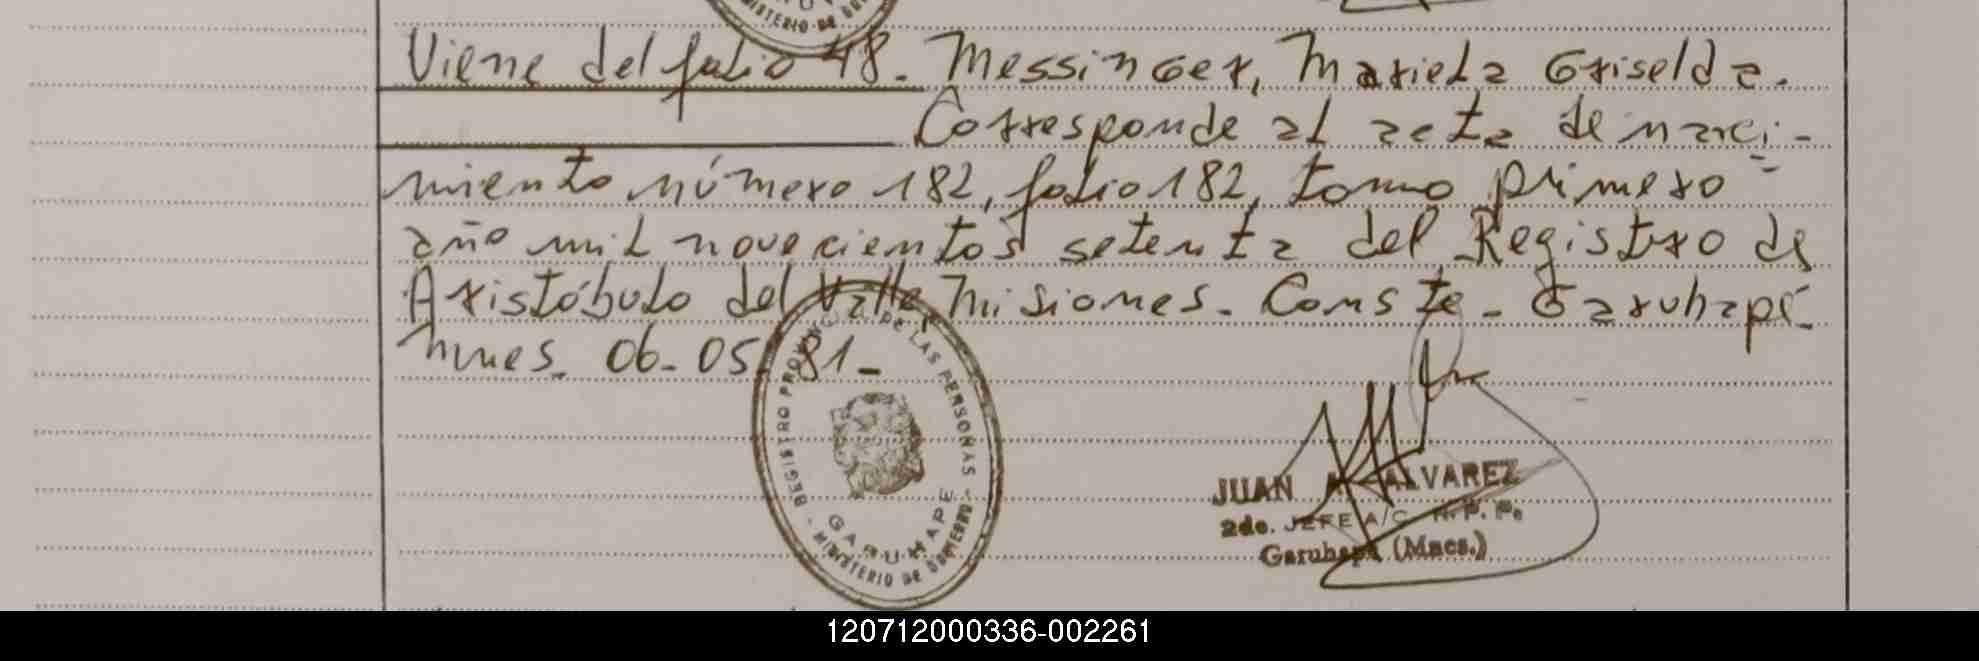 Viene del folio 48. Messinger, Mariela Griselda.
Corresponde al acta de naci-
miento número 182, folio 182, tomo primero
año mil novecientos setenta del Registro de
Aristóbulo del Valle, Misiones. Conste. Garuhapé
Mnes. 06-05-81-
REGISTRO PROVINCIAL DE LAS PERSONAS
GARUHAPE
MINISTERIO DE GOBIERNO
JUAN ALVAREZ
2do. JEFE A/C R. P. P.
Garuhapé (Mnes.)
120712000336-002261